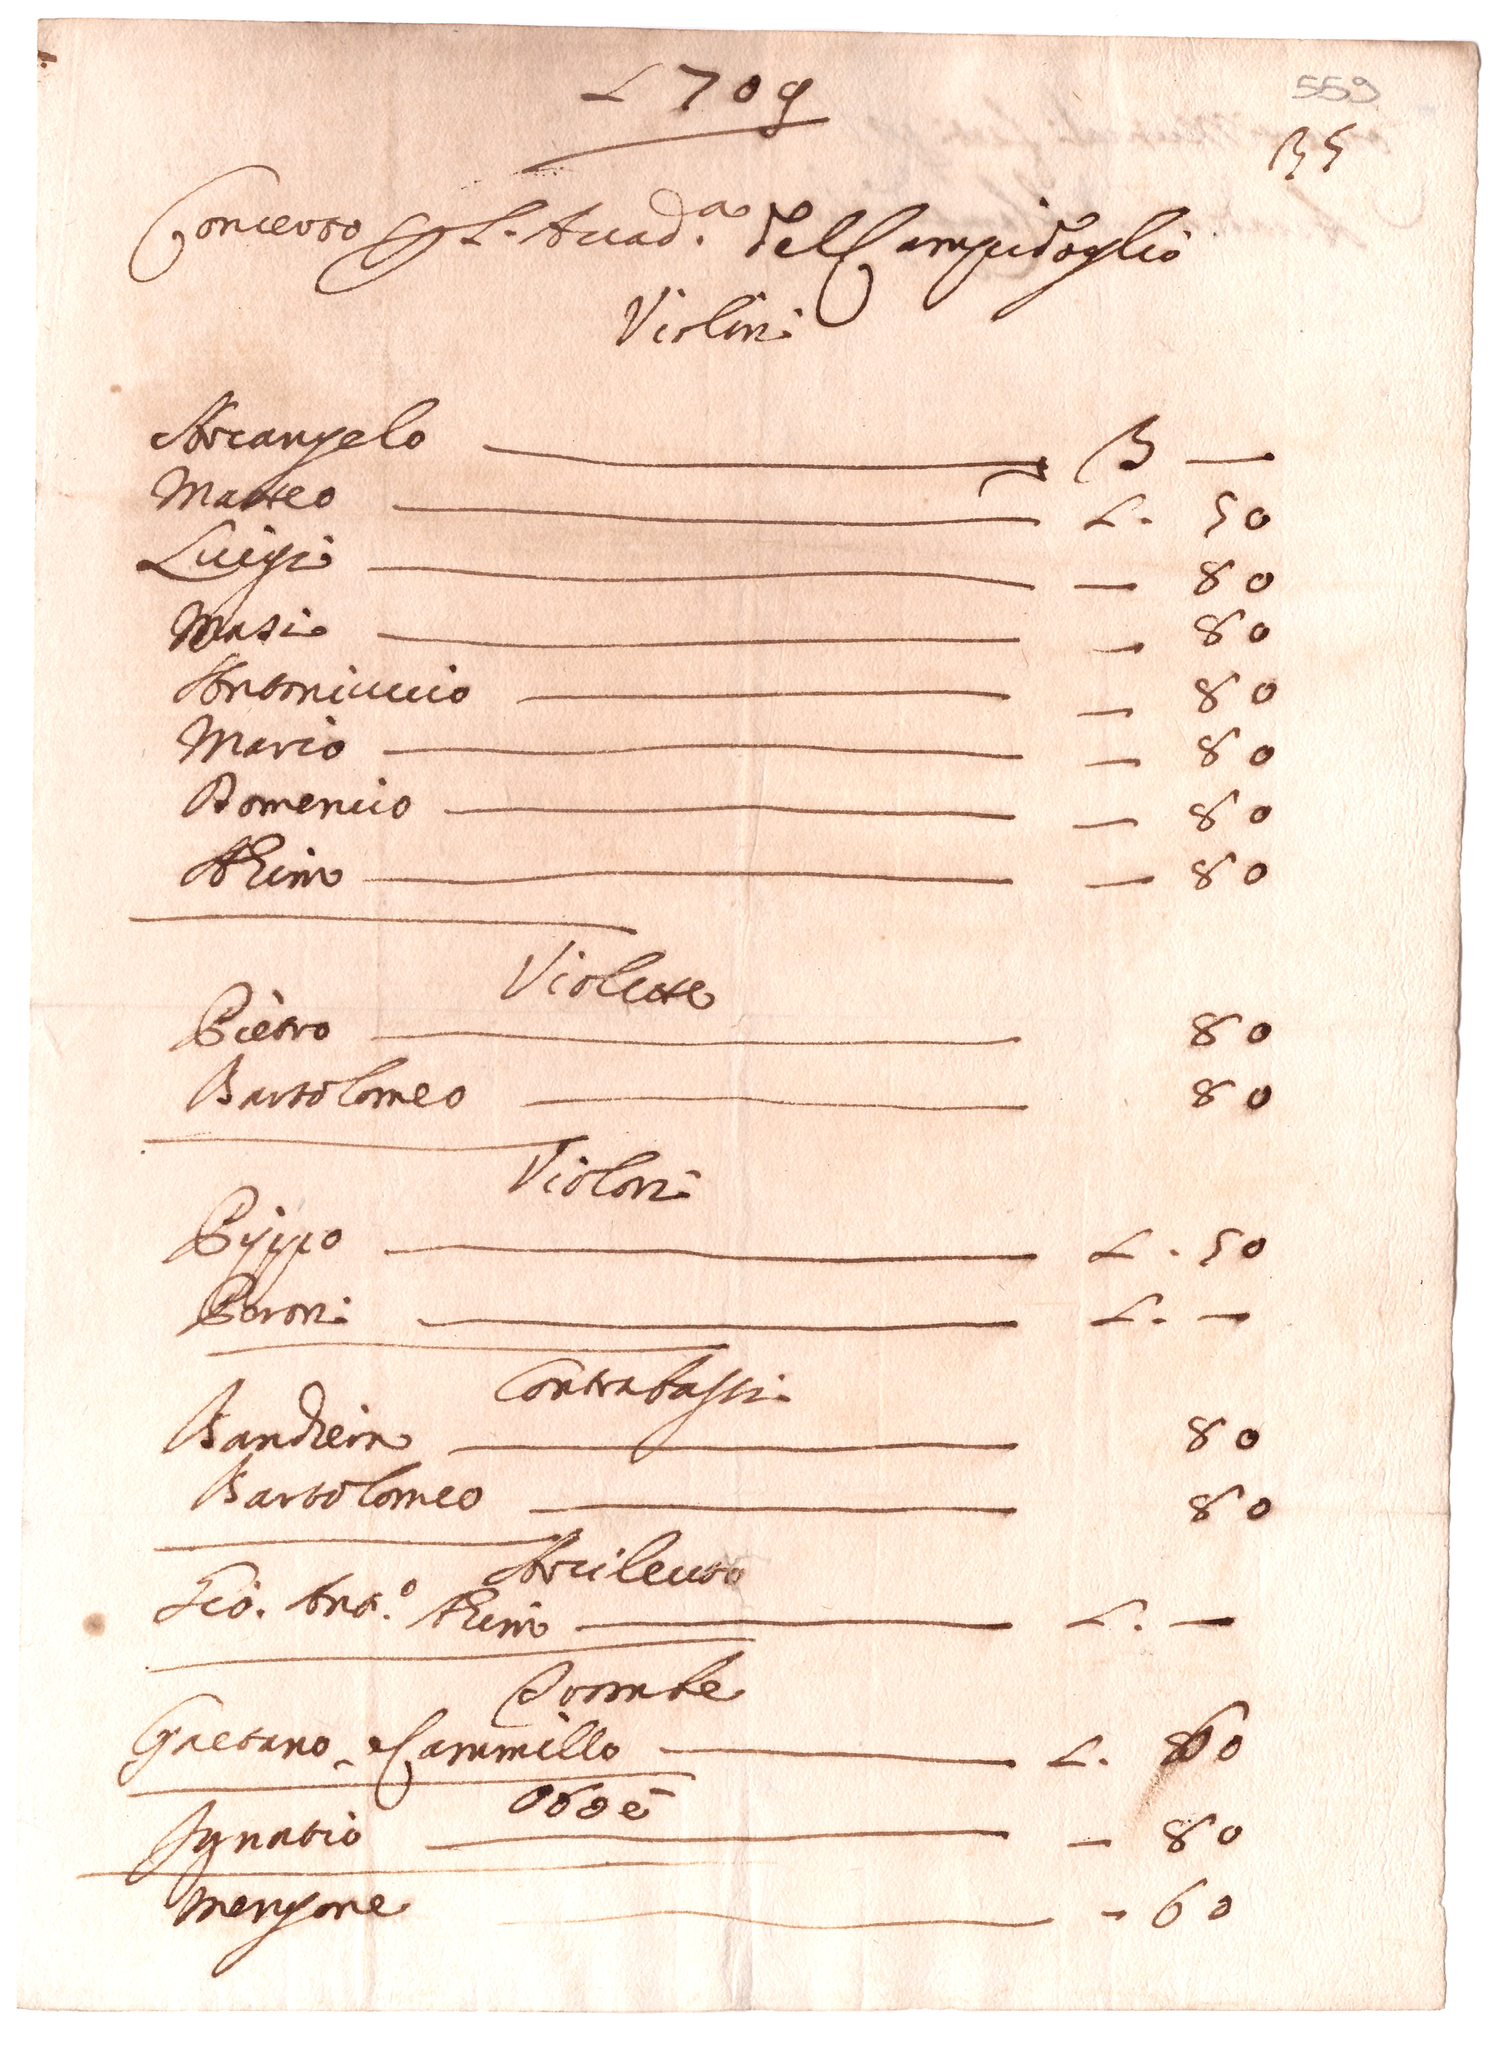 1709
559
35
Concerto p L'Accad.a del Campidoglio
Violini
Arcangelo — 3 —
Matteo — 1. 50
Luigi — — 80
Masi — — 80
Antoniuccio — — 80
Mario — — 80
Domenico — — 80
— — 80
Violette
Pietro — 80
Bartolomeo — 80
Violoni
Pippo — 1. 50
Peroni — 1. —
Contrabassi
Bandiera — 80
Bartolomeo — 80
Arcileuto
Gio. Ant.o — 1. —
Trombe
Gaetano e Cammillo — 1. 60
Oboè
Ignatio — — 80
Mengone — - 60